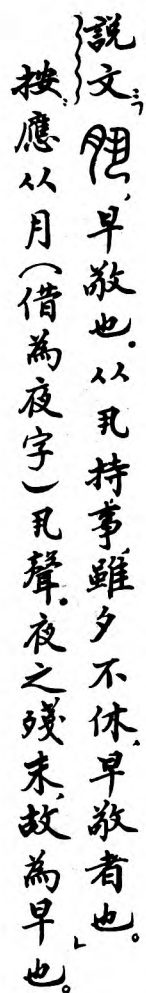 說文：「𡖊，早敬也。从丮持事，雖夕不休，早敬者也。」
按：應从月（借為夜字）丮聲。夜之殘末，故為早也。